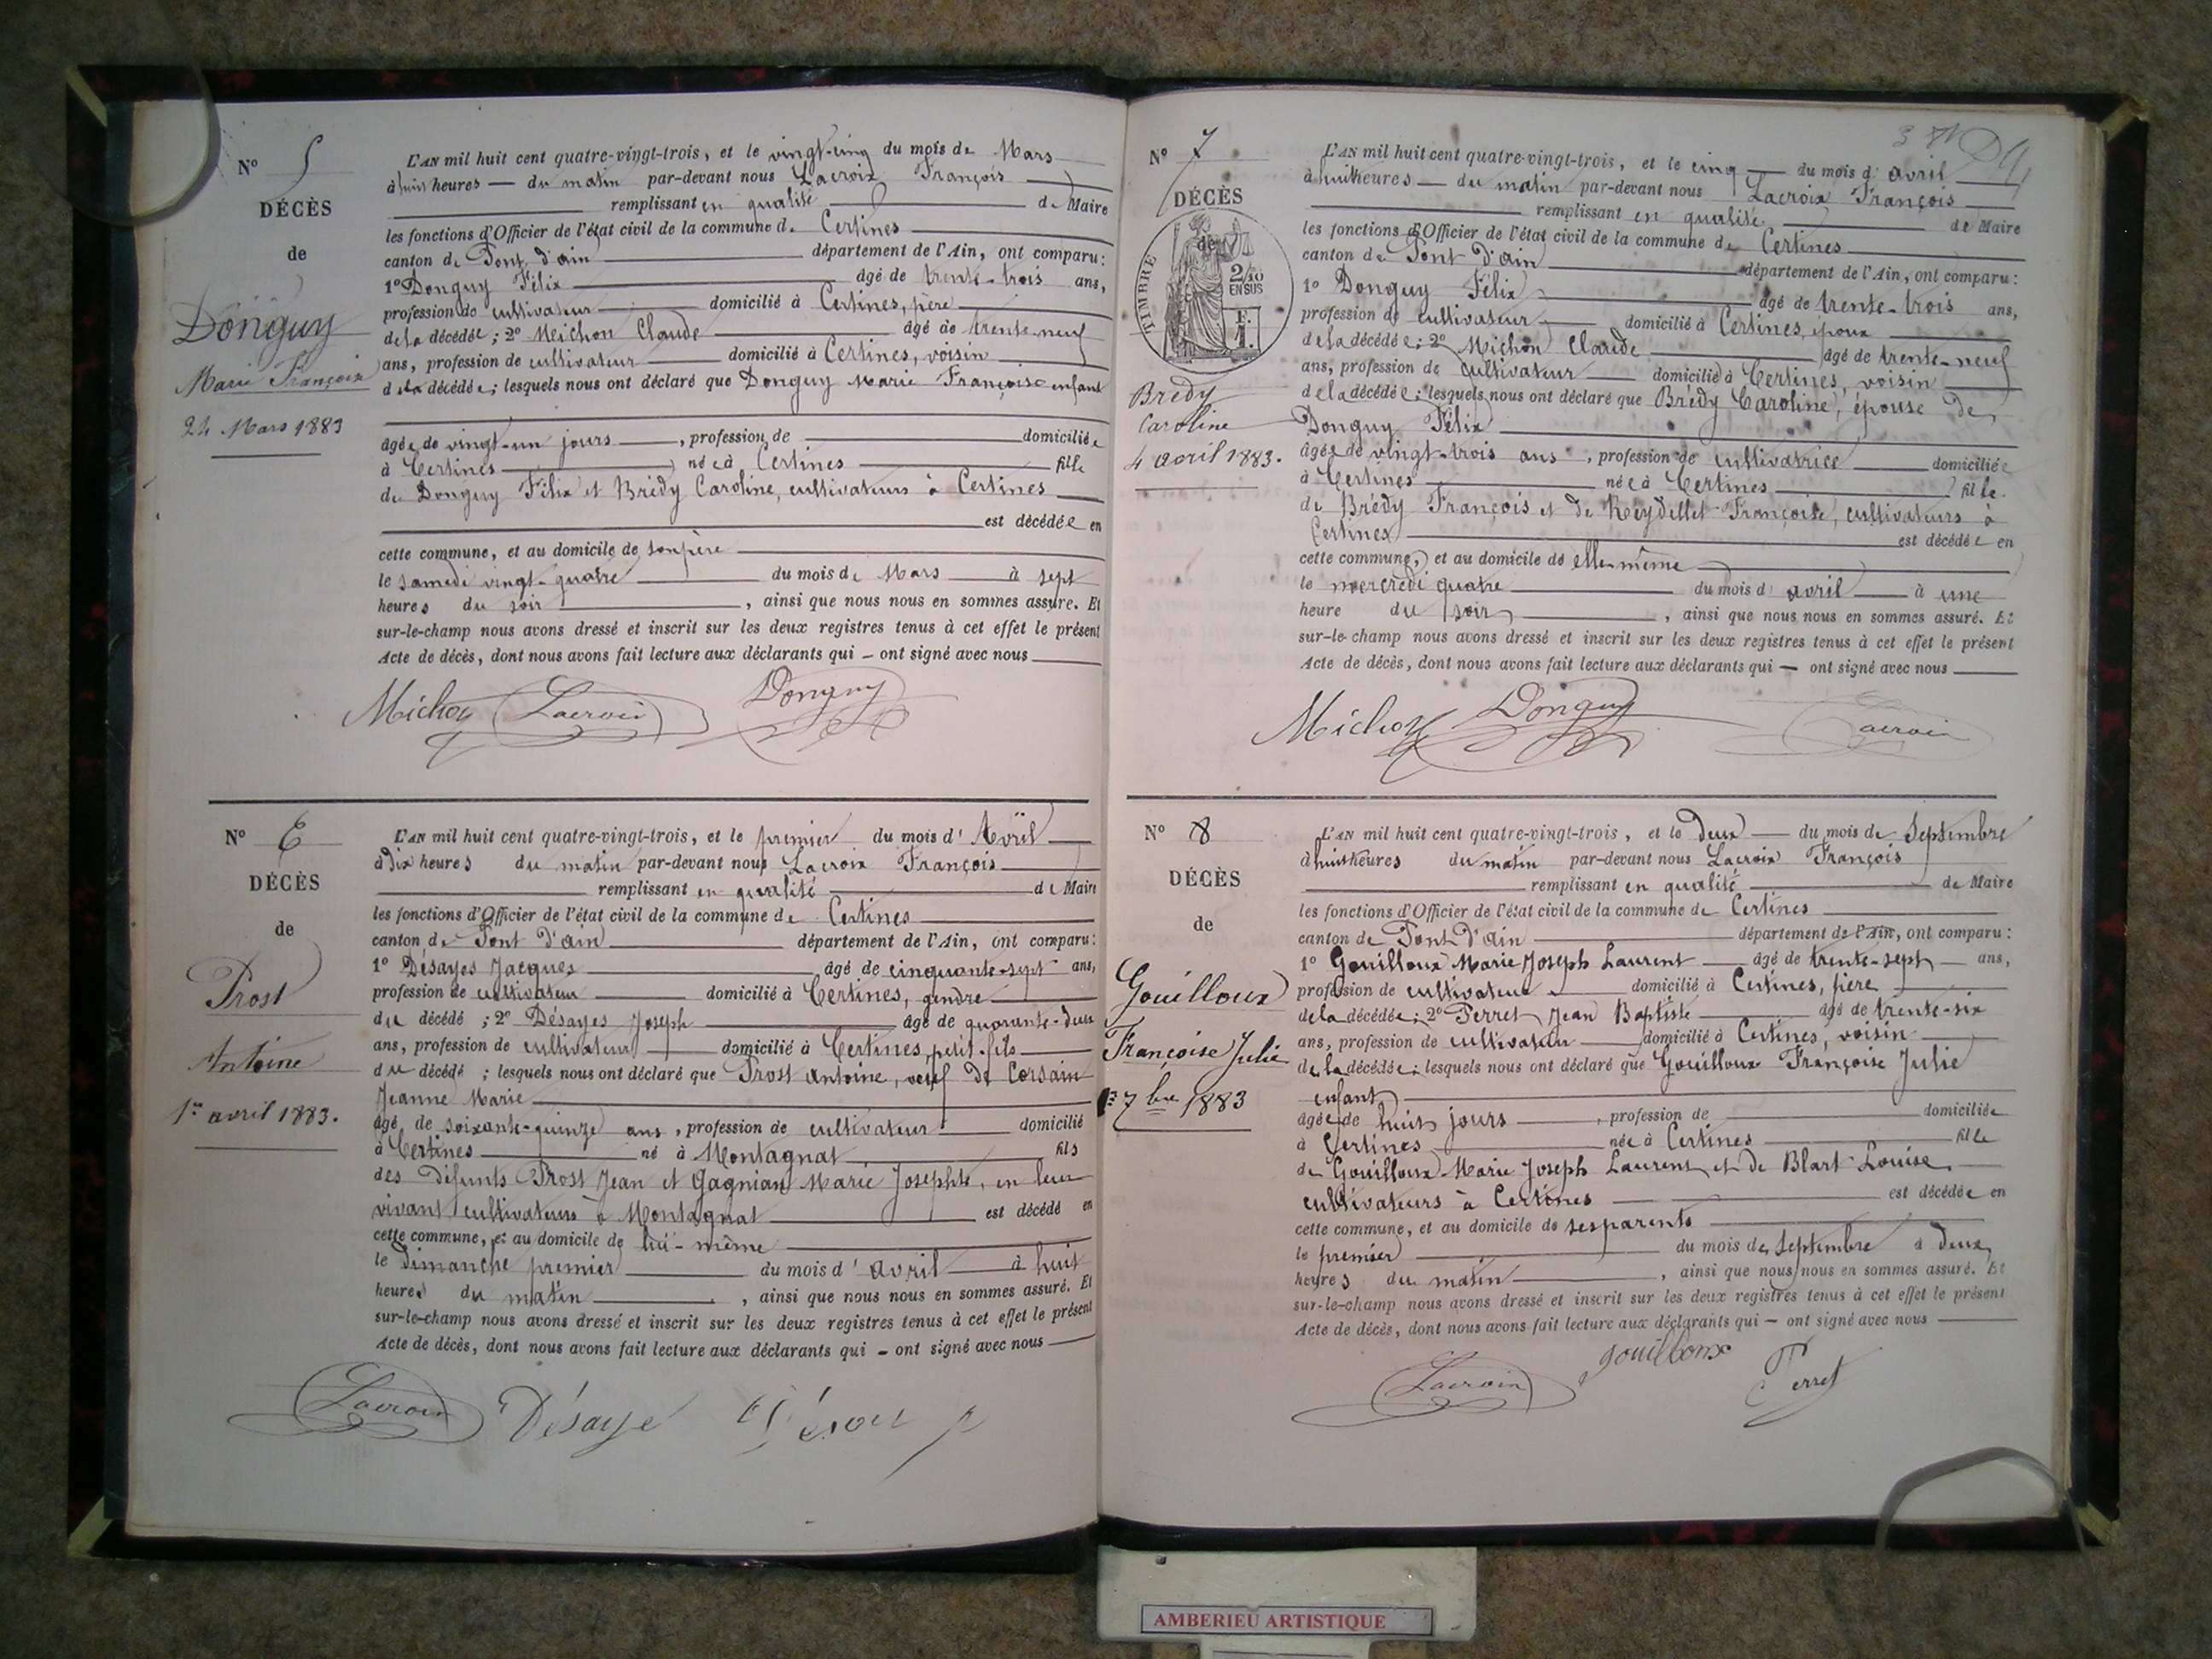 N° 5
DÉCÈS
de
Donguy
Marie Françoise
24 Mars 1883
L'AN mil huit cent quatre-vingt-trois, et le vingt-cinq du mois de Mars
à huit heures du matin par-devant nous Lacroix François
remplissant en qualité de Maire
les fonctions d'Officier de l'état civil de la commune de Certines
canton de Pont d'ain département de l'Ain, ont comparu:
1° Donguy Félix âgé de trente-trois ans,
profession de cultivateur domicilié à Certines, père
de la décédée; 2° Michon Claude âgé de trente neuf
ans, profession de cultivateur domicilié à Certines, voisin
de la décédée; lesquels nous ont déclaré que Donguy Marie Françoise enfant
âgée de vingt-un jours, profession de domiciliée
à Certines née à Certines fille
de Donguy Félix et Brédy Caroline, cultivateurs à Certines
est décédée en
cette commune, et au domicile de son père
le samedi vingt-quatre du mois de Mars à sept
heures du soir, ainsi que nous nous en sommes assuré. Et
sur-le-champ nous avons dressé et inscrit sur les deux registres tenus à cet effet le présent
Acte de décès, dont nous avons fait lecture aux déclarants qui - ont signé avec nous
Michon Lacroix Donguy
N° 6
DÉCÈS
de
Prost
Antoine
1er avril 1883.
L'AN mil huit cent quatre-vingt-trois, et le premier du mois d'Avril
à dix heures du matin par-devant nous Lacroix François
remplissant en qualité de Maire
les fonctions d'Officier de l'état civil de la commune de Certines
canton de Pont d'ain département de l'Ain, ont comparu:
1° Désayes Jacques âgé de cinquante-sept ans,
profession de cultivateur domicilié à Certines, gendre
du décédé; 2° Désayes Joseph âgé de quarante-deux
ans, profession de cultivateur domicilié à Certines, petit-fils
du décédé; lesquels nous ont déclaré que Prost antoine, veuf de Corsain
Jeanne Marie
âgé de soixante-quinze ans, profession de cultivateur domicilié
à Certines né à Montagnat fils
des défunts Prost Jean et Gagnian Marie Josephte, en leur
vivant cultivateurs à Montagnat est décédé en
cette commune, et au domicile de lui-même
le dimanche premier du mois d'avril à huit
heures du matin, ainsi que nous nous en sommes assuré. Et
sur-le-champ nous avons dressé et inscrit sur les deux registres tenus à cet effet le présent
Acte de décès, dont nous avons fait lecture aux déclarants qui - ont signé avec nous
Lacroix Désaye
N° 7
DÉCÈS
de
TIMBRE
2/10
EN SUS
Brédy
Caroline
4 avril 1883.
L'AN mil huit cent quatre-vingt-trois, et le cinq du mois d'avril
à huit heures du matin par-devant nous Lacroix François
remplissant en qualité de Maire
les fonctions d'Officier de l'état civil de la commune de Certines
canton de Pont d'ain département de l'Ain, ont comparu:
1° Donguy Félix âgé de trente-trois ans,
profession de cultivateur domicilié à Certines, époux
de la décédée; 2° Michon Claude âgé de trente-neuf
ans, profession de cultivateur domicilié à Certines, voisin
de la décédée; lesquels nous ont déclaré que Brédy Caroline, épouse de
Donguy Félix
âgée de vingt-trois ans, profession de cultivatrice domiciliée
à Certines née à Certines fille
de Brédy François et de Reydellet Françoise, cultivateurs à
Certines est décédée en
cette commune, et au domicile de elle-même
le mercredi quatre du mois d'avril à une
heure du soir, ainsi que nous nous en sommes assuré. Et
sur-le-champ nous avons dressé et inscrit sur les deux registres tenus à cet effet le présent
Acte de décès, dont nous avons fait lecture aux déclarants qui - ont signé avec nous
Michon Donguy Lacroix
N° 8
DÉCÈS
de
Gouilloux
Françoise Julie
1er 7bre 1883
L'AN mil huit cent quatre-vingt-trois, et le deux du mois de Septembre
à huit heures du matin par-devant nous Lacroix François
remplissant en qualité de Maire
les fonctions d'Officier de l'état civil de la commune de Certines
canton de Pont d'ain département de l'Ain, ont comparu:
1° Gouilloux Marie Joseph Laurent âgé de trente-sept ans,
profession de cultivateur domicilié à Certines, père
de la décédée; 2° Perret Jean Baptiste âgé de trente-six
ans, profession de cultivateur domicilié à Certines, voisin
de la décédée; lesquels nous ont déclaré que Gouilloux Françoise Julie
enfant
âgée de huit jours, profession de domiciliée
à Certines née à Certines fille
de Gouilloux Marie Joseph Laurent et de Blart Louise,
cultivateurs à Certines est décédée en
cette commune, et au domicile de ses parents
le premier du mois de Septembre à deux
heures du matin, ainsi que nous nous en sommes assuré. Et
sur-le-champ nous avons dressé et inscrit sur les deux registres tenus à cet effet le présent
Acte de décès, dont nous avons fait lecture aux déclarants qui - ont signé avec nous
Lacroix gouilloux Perret
AMBERIEU ARTISTIQUE